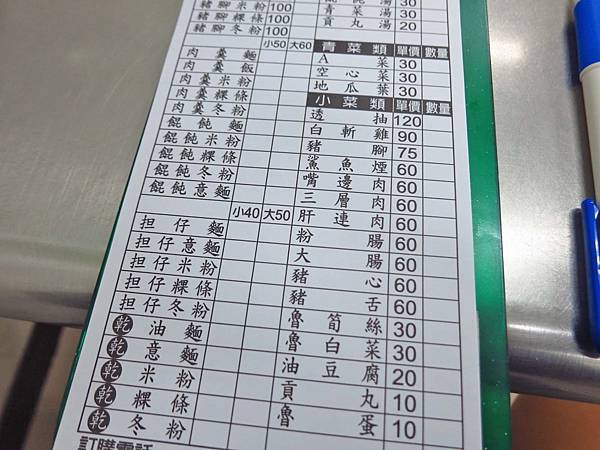 豬腳米粉 100
豬腳粿條 100
豬腳冬粉 100
小50 大60
肉羹麵
肉羹飯
肉羹米粉
肉羹粿條
肉羹冬粉
餛飩麵
餛飩米粉
餛飩粿條
餛飩冬粉
餛飩意麵
小40 大50
担仔麵
担仔意麵
担仔米粉
担仔粿條
担仔冬粉
乾油麵
乾意麵
乾米粉
乾粿條
乾冬粉
訂購電話
湯 30
湯 30
貢丸湯 20
青菜類 單價 數量
A菜 30
空心菜 30
地瓜葉 30
小菜類 單價 數量
透抽 120
白斬雞 90
豬腳 75
鯊魚煙 60
嘴邊肉 60
三層肉 60
肝連 60
粉腸 60
大腸 60
豬心 60
豬舌 60
魯筍絲 30
魯白菜 30
油豆腐 20
貢丸 10
魯蛋 10